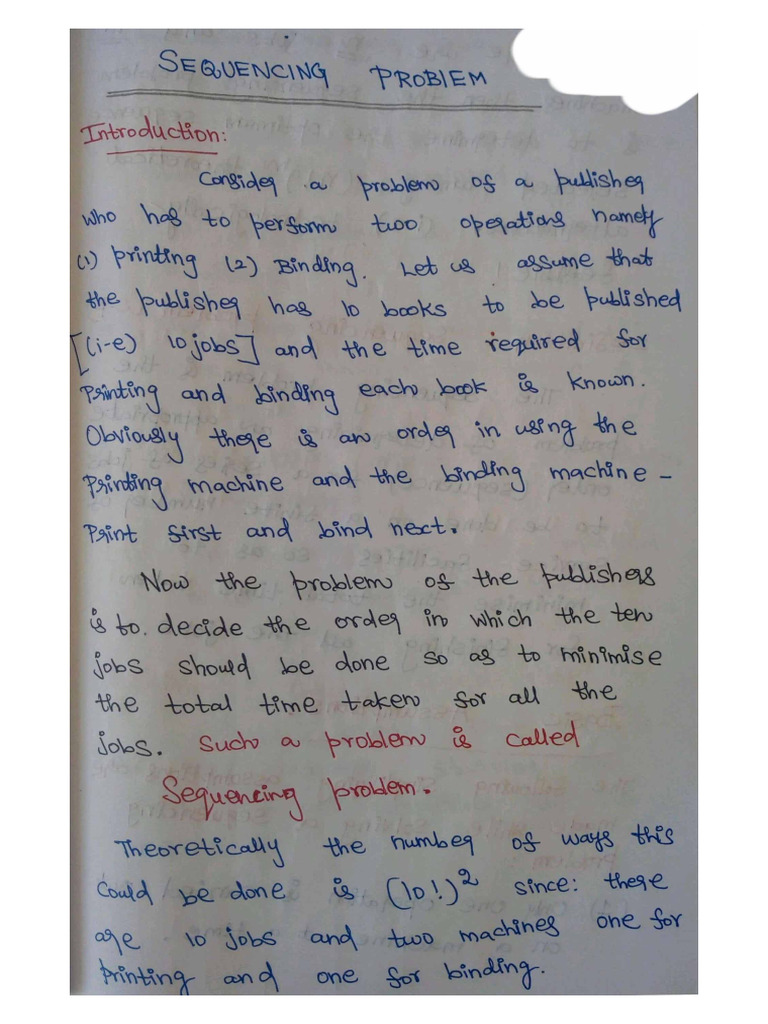 SEQUENCING PROBLEM
Introduction:
Consider a problem of a publisher
who has to perform two operations namely
(1) printing (2) Binding. Let us assume that
the publisher has 10 books to be published
[(i-e) 10 jobs] and the time required for
Printing and binding each book is known.
Obviously there is an order in using the
Printing machine and the binding machine -
Print first and bind next.
Now the problem of the publishers
is to. decide the order in which the ten
jobs should be done so as to minimise
the total time taken for all the
jobs. Such a problem is called
Sequencing problem.
Theoretically the number of ways this
Could be done is (10!)² since: there
are 10 jobs and two machines one for
printing and one for binding.